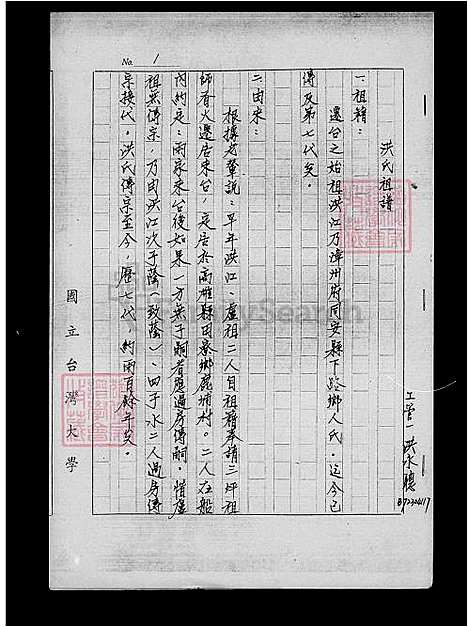 No. 1
洪氏祖譜
一祖籍：
遷台之始祖洪江乃漳州府同安縣下路鄉人氏，迄今已
傳及第七代矣。
二由來：
根據父輩說：早年洪江、盧祖二人自祖籍奉請三坪祖
師香火遷居來台，定居於高雄縣田寮鄉鹿埔村。二人在船
內約定：兩家來台後如果一方無子嗣者應過房傳嗣，惜盧
祖無傳宗，乃由洪江次子蔭（致蔭）、四子水二人過房傳
宗接代，洪氏傳宗至今，歷七代，約兩百餘年矣。
工管一洪永聰
B7230417
國立台灣大學
FamilySearch